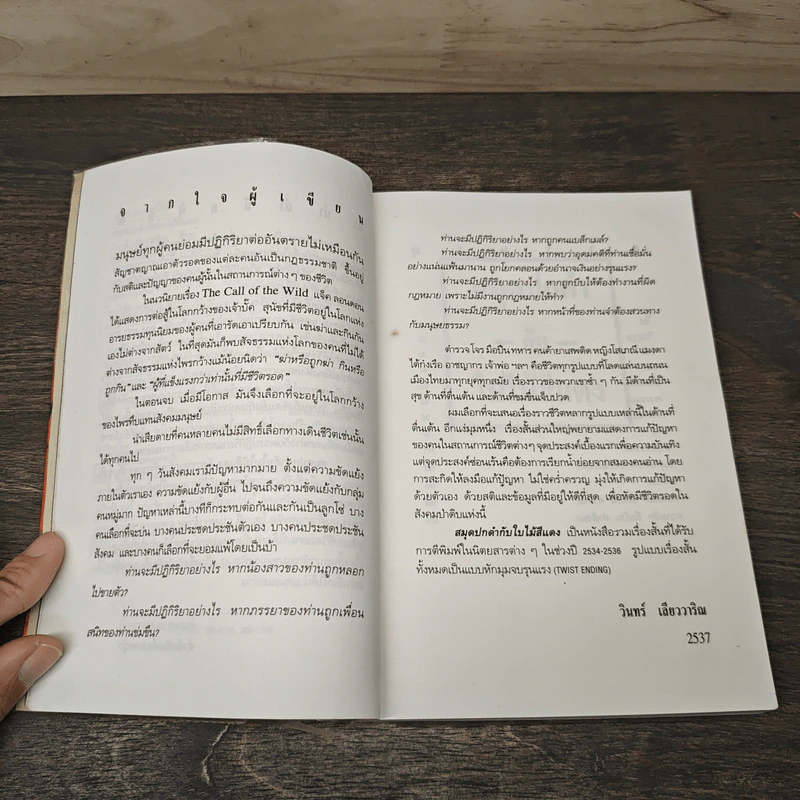 จากใจผู้เขียน
มนุษย์ทุกผู้คนย่อมมีปฏิกิริยาต่ออันตรายไม่เหมือนกัน
สัญชาตญาณเอาตัวรอดของแต่ละคนอันเป็นกฎธรรมชาติ ขึ้นอยู่
กับสติและปัญญาของคนผู้นั้นในสถานการณ์ต่าง ๆ ของชีวิต
ในนวนิยายเรื่อง The Call of the Wild แจ็ค ลอนดอน
ได้แสดงการต่อสู้ในโลกกว้างของเจ้าบั๊ค สุนัขที่มีชีวิตอยู่ในโลกแห่ง
อารยธรรมทุนนิยมของผู้คนที่เอารัดเอาเปรียบกัน เข่นฆ่าและกินกัน
เองไม่ต่างจากสัตว์ ในที่สุดมันก็พบสัจธรรมแห่งโลกของคนที่ไม่ได้
ต่างจากสัจธรรมแห่งไพรกว้างแม้น้อยนิดว่า "ฆ่าหรือถูกฆ่า กินหรือ
ถูกกิน" และ "ผู้ที่แข็งแรงกว่าเท่านั้นที่มีชีวิตรอด"
ในตอนจบ เมื่อมีโอกาส มันจึงเลือกที่จะอยู่ในโลกกว้าง
ของไพรทึบแทนสังคมมนุษย์
น่าเสียดายที่คนหลายคนไม่มีสิทธิ์เลือกทางเดินชีวิตเช่นนั้น
ได้ทุกคนไป
ทุก ๆ วันสังคมเรามีปัญหามากมาย ตั้งแต่ความขัดแย้ง
ภายในตัวเราเอง ความขัดแย้งกับผู้อื่น ไปจนถึงความขัดแย้งกับกลุ่ม
คนหมู่มาก ปัญหาเหล่านี้บางทีก็กระทบต่อกันและกันเป็นลูกโซ่ บาง
คนเลือกที่จะบ่น บางคนประชดประชันตัวเอง บางคนประชดประชัน
สังคม และบางคนก็เลือกที่จะยอมแพ้โดยเป็นบ้า
ท่านจะมีปฏิกิริยาอย่างไร หากน้องสาวของท่านถูกหลอก
ไปขายตัว?
ท่านจะมีปฏิกิริยาอย่างไร หากภรรยาของท่านถูกเพื่อน
สนิทของท่านข่มขืน?
ท่านจะมีปฏิกิริยาอย่างไร หากถูกคนแบล็กเมล์?
ท่านจะมีปฏิกิริยาอย่างไร หากพบว่าอุดมคติที่ท่านเชื่อมั่น
อย่างแน่นแฟ้นมานาน ถูกโยกคลอนด้วยอำนาจเงินอย่างรุนแรง?
ท่านจะมีปฏิกิริยาอย่างไร หากถูกบีบให้ต้องทำงานที่ผิด
กฎหมาย เพราะไม่มีงานถูกกฎหมายให้ทำ?
ท่านจะมีปฏิกิริยาอย่างไร หากหน้าที่ของท่านจำต้องสวนทาง
กับมนุษยธรรม?
ตำรวจ โจร มือปืน ทหาร คนค้ายาเสพติด หญิงโสเภณี แมงดา
ไต้ก๋งเรือ อาชญากร เจ้าพ่อ ฯลฯ คือชีวิตทุกรูปแบบที่โลดแล่นบนถนน
เมืองไทยมาทุกยุคทุกสมัย เรื่องราวของพวกเขาซ้ำ ๆ กัน มีด้านที่เป็น
สุข ด้านที่ตื่นเต้น และด้านที่ขมขื่นเจ็บปวด
ผมเลือกที่จะเสนอเรื่องราวชีวิตหลากรูปแบบเหล่านี้ในด้านที่
ตื่นเต้น อีกแง่มุมหนึ่ง เรื่องสั้นส่วนใหญ่พยายามแสดงการแก้ปัญหา
ของคนในสถานการณ์ชีวิตต่างๆ จุดประสงค์เบื้องแรกเพื่อความบันเทิง
แต่จุดประสงค์ซ่อนเร้นคือต้องการเรียกน้ำย่อยจากสมองคนอ่าน โดย
การสะกิดให้ลงมือแก้ปัญหา ไม่ใช่คร่ำครวญ มุ่งให้เกิดการแก้ปัญหา
ด้วยตัวเอง ด้วยสติและข้อมูลที่มีอยู่ให้ดีที่สุด เพื่อหัดมีชีวิตรอดใน
สังคมป่าดิบแห่งนี้
สมุดปกดำกับใบไม้สีแดง เป็นหนังสือรวมเรื่องสั้นที่ได้รับ
การตีพิมพ์ในนิตยสารต่าง ๆ ในช่วงปี 2534-2536 รูปแบบเรื่องสั้น
ทั้งหมดเป็นแบบหักมุมจบรุนแรง (TWIST ENDING)
วินทร์ เลียววาริณ
2537